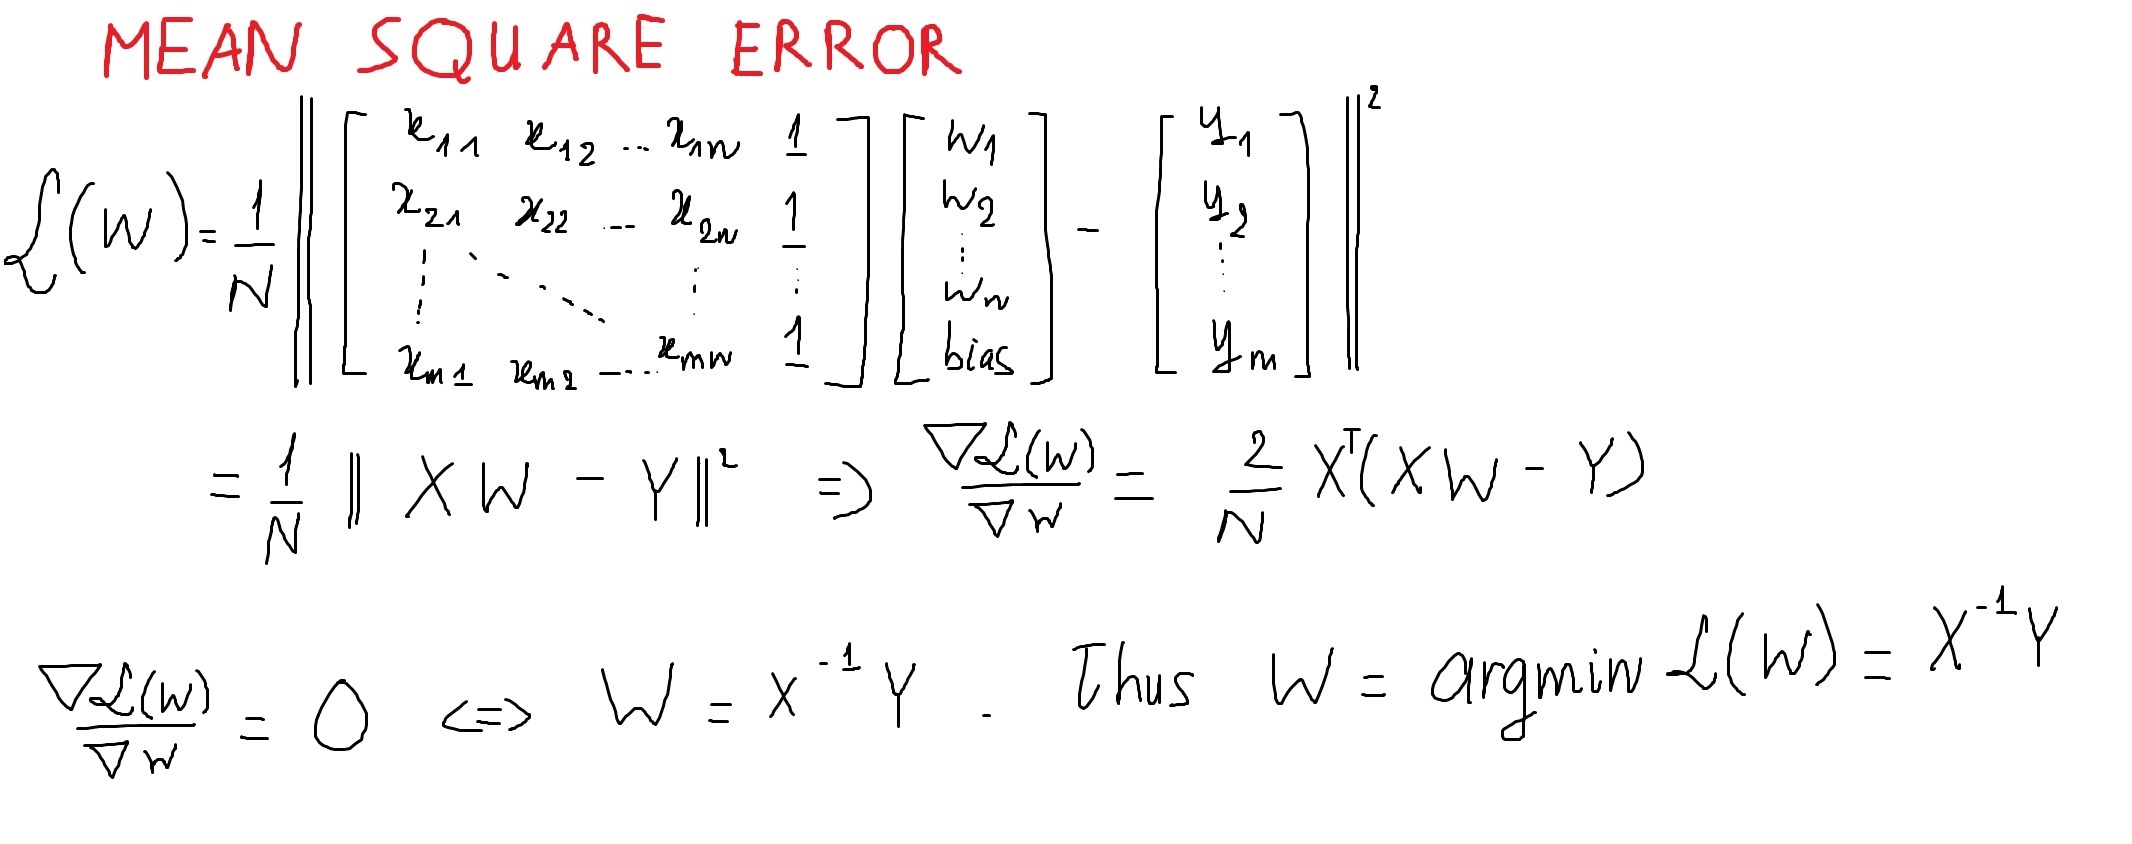 MEAN SQUARE ERROR
ℒ(W) = 1/N ‖ [ x₁₁ x₁₂ ... x₁ₙ 1 ; x₂₁ x₂₂ ... x₂ₙ 1 ; ⋮ ⋱ ⋮ ⋮ ; xₘ₁ xₘ₂ ... xₘₙ 1 ] [ w₁ ; w₂ ; ⋮ ; wₙ ; bias ] - [ y₁ ; y₂ ; ⋮ ; yₘ ] ‖²
= 1/N ‖ XW - Y ‖² ⇒ ∇ℒ(W)/∇W = 2/N Xᵀ(XW - Y)
∇ℒ(W)/∇W = 0 ⇔ W = X⁻¹Y . Thus W = argmin ℒ(W) = X⁻¹Y